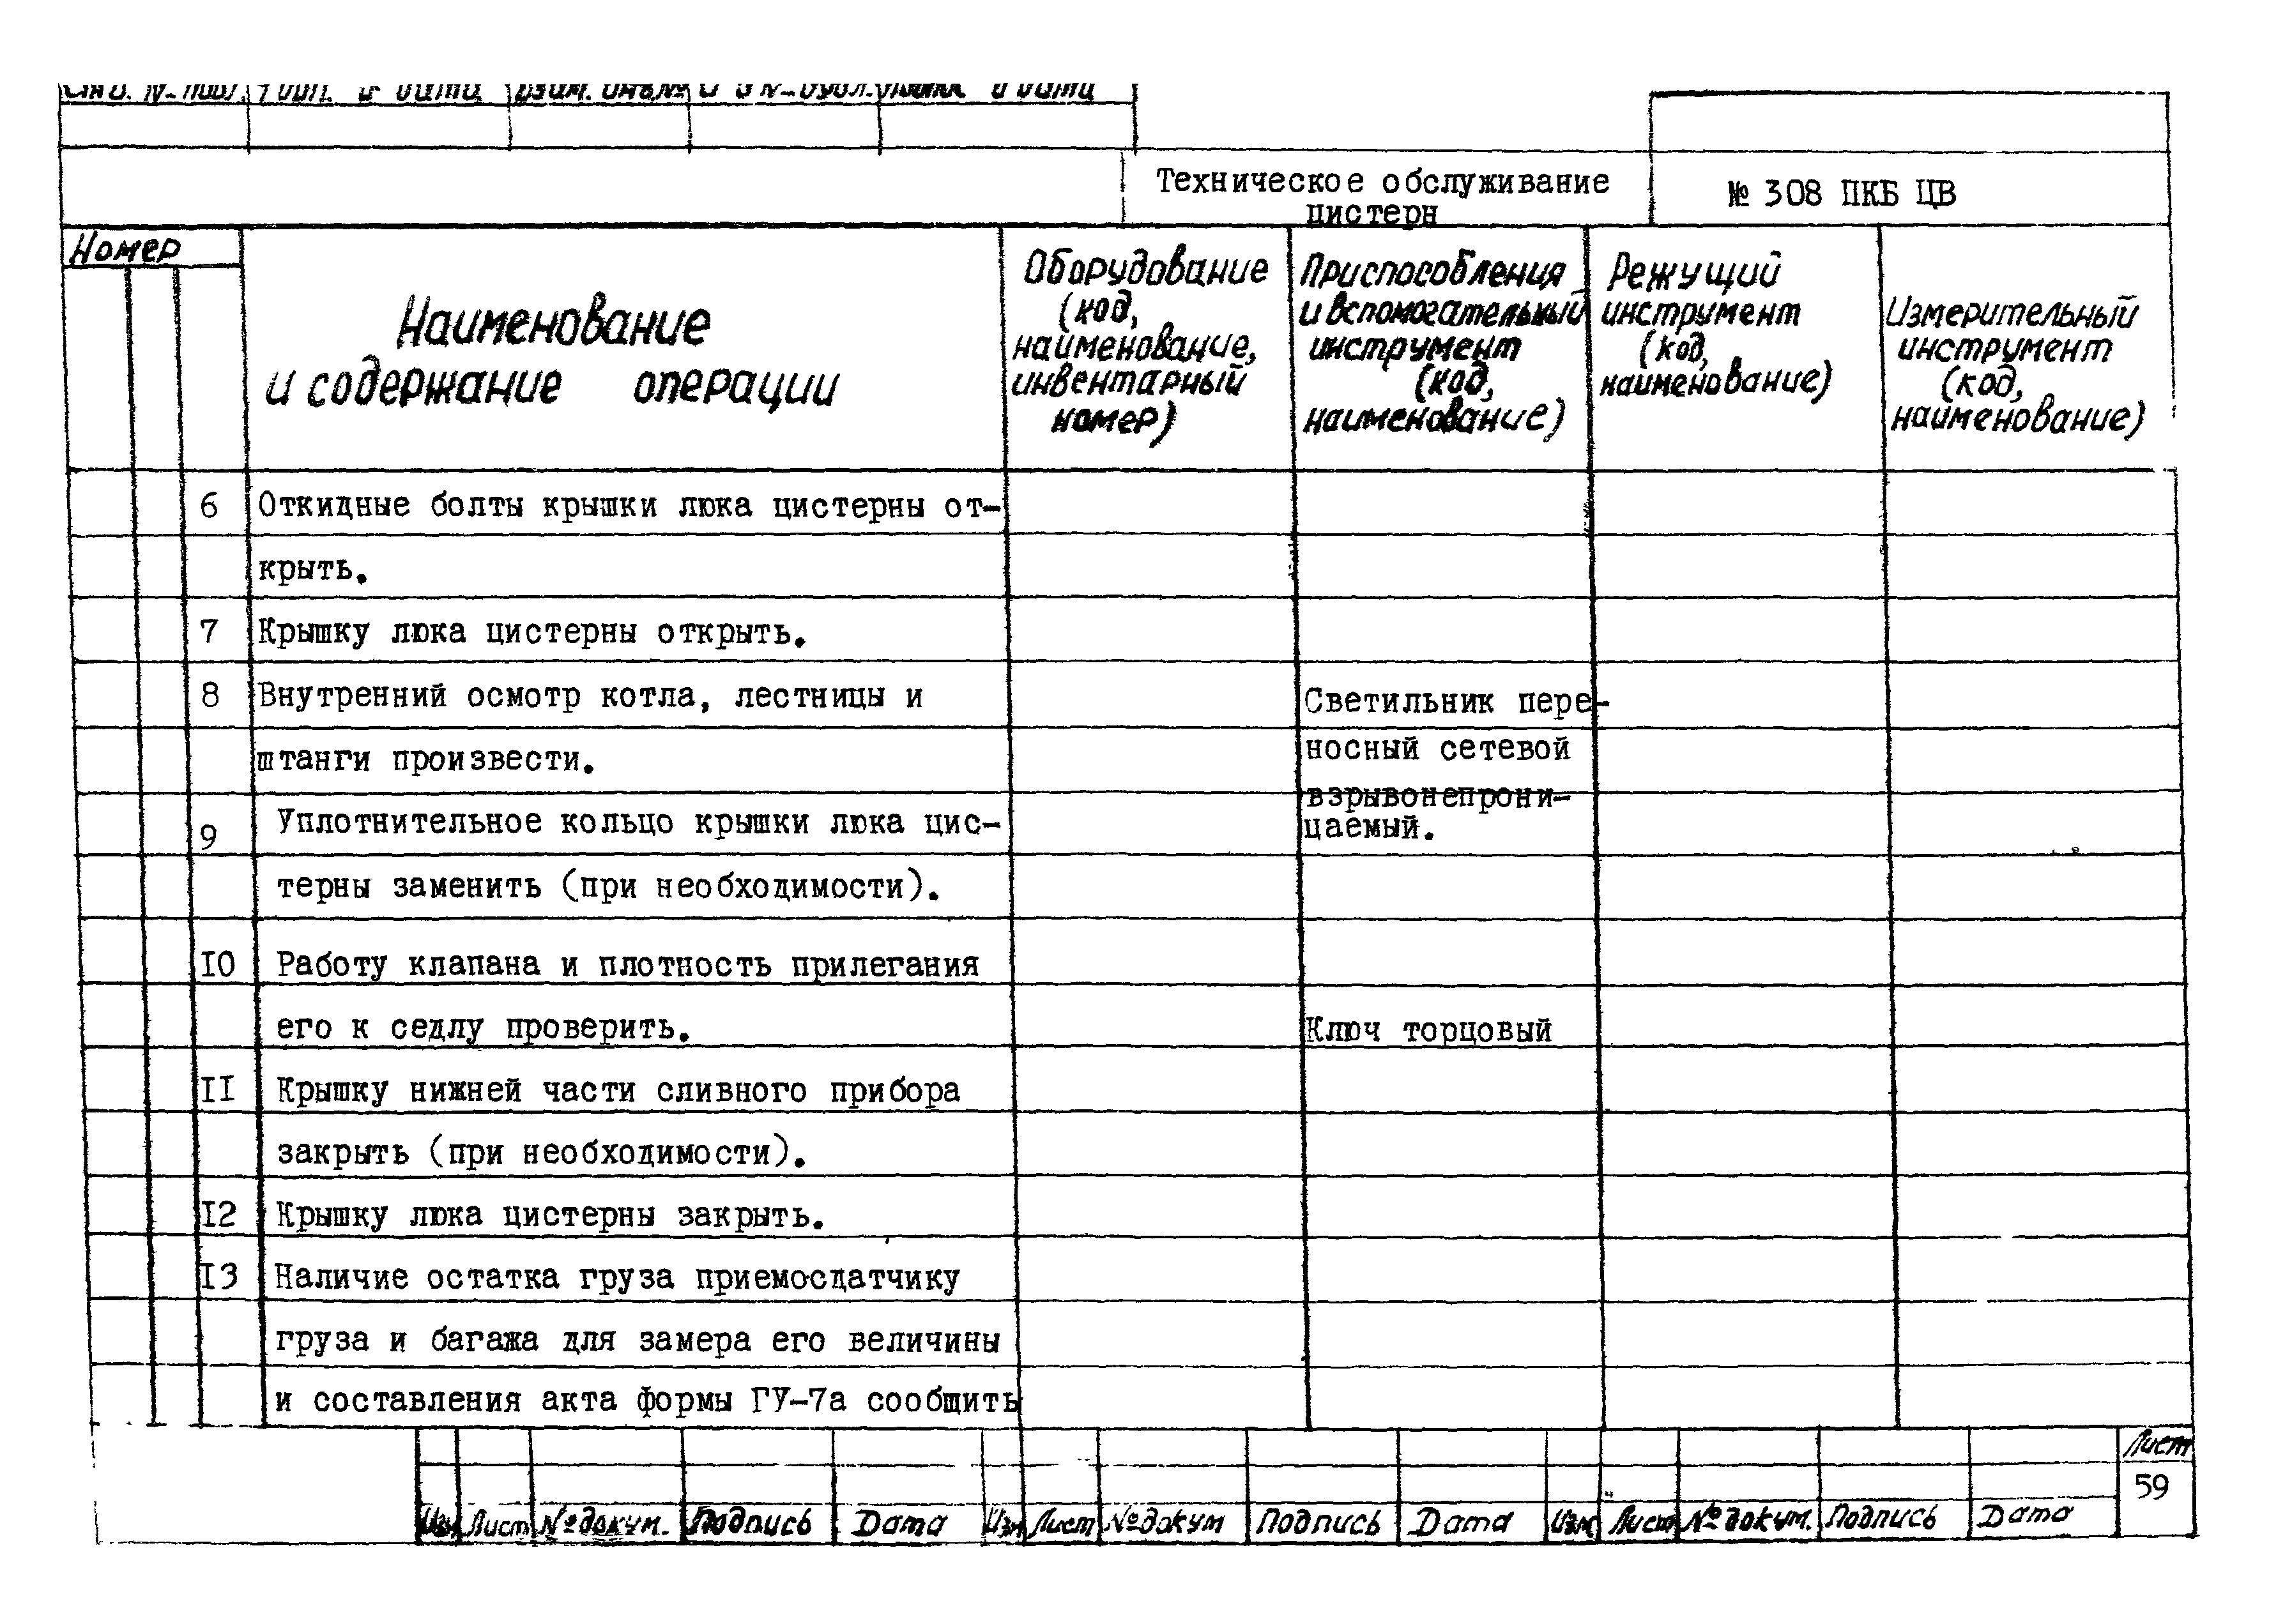 Техническое обслуживание
цистерн
№ 308 ПКБ ЦВ
Номер
Наименование
и содержание операции
Оборудование
(код,
наименование,
инвентарный
номер)
Приспособления
и вспомогательный
инструмент
(код,
наименование)
Режущий
инструмент
(код,
наименование)
Измерительный
инструмент
(код,
наименование)
6 Откидные болты крышки люка цистерны от-
крыть.
7 Крышку люка цистерны открыть.
8 Внутренний осмотр котла, лестницы и
штанги произвести.
Светильник пере-
носный сетевой
взрывонепрони-
цаемый.
9 Уплотнительное кольцо крышки люка цис-
терны заменить (при необходимости).
10 Работу клапана и плотность прилегания
его к седлу проверить.
Ключ торцовый
11 Крышку нижней части сливного прибора
закрыть (при необходимости).
12 Крышку люка цистерны закрыть.
13 Наличие остатка груза приемосдатчику
груза и багажа для замера его величины
и составления акта формы ГУ-7а сообщить
Лист
59
Изм Лист № докум. Подпись Дата Изм Лист № докум Подпись Дата Изм Лист № докум. Подпись Дата